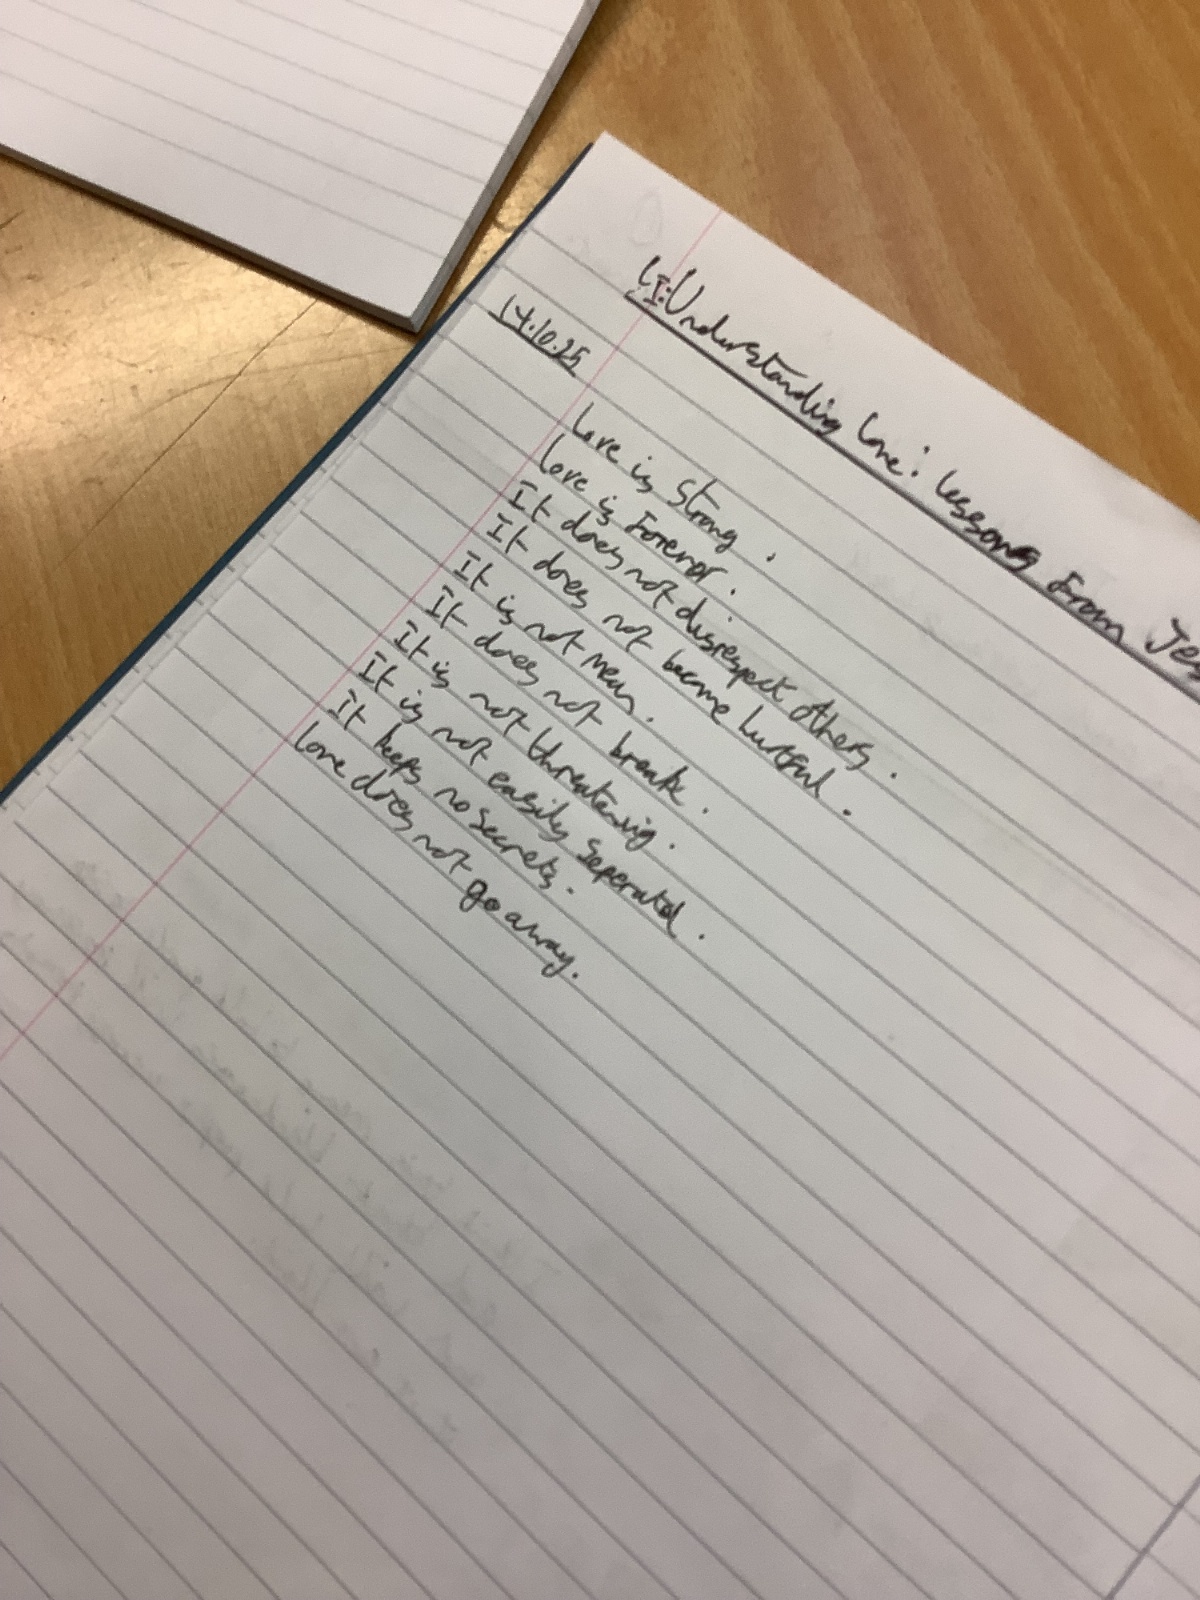 LI: Understanding love: lessons From Jes
14.10.25
Love is Strong.
Love is Forever.
It does not disrespect others.
It does not become hurtful.
It is not mean.
It does not break.
It is not threatening.
It is not easily Seperated.
It keeps no secrets.
Love does not go away.